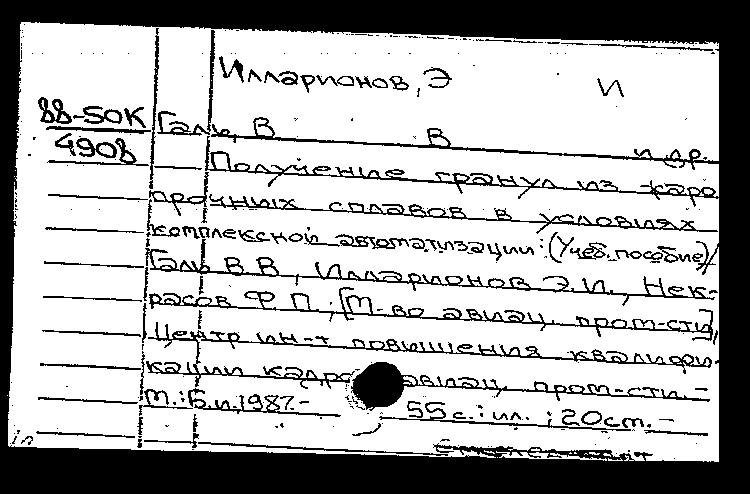 Илларионов, Э И
88-50К
4908
Галь, В В и др.
Получение гранул из жаро
прочных сплавов в условиях
комплексной автоматизации: (Учеб. пособие)/
Галь В.В., Илларионов Э.И., Нек-
расов Ф.П.; [М-во авиац. пром-сти],
Центр ин-т повышения квалифи-
кации кадро авиац. пром-сти.-
М.: Б.и, 1987.- 55 с.: ил.; 20 см.-